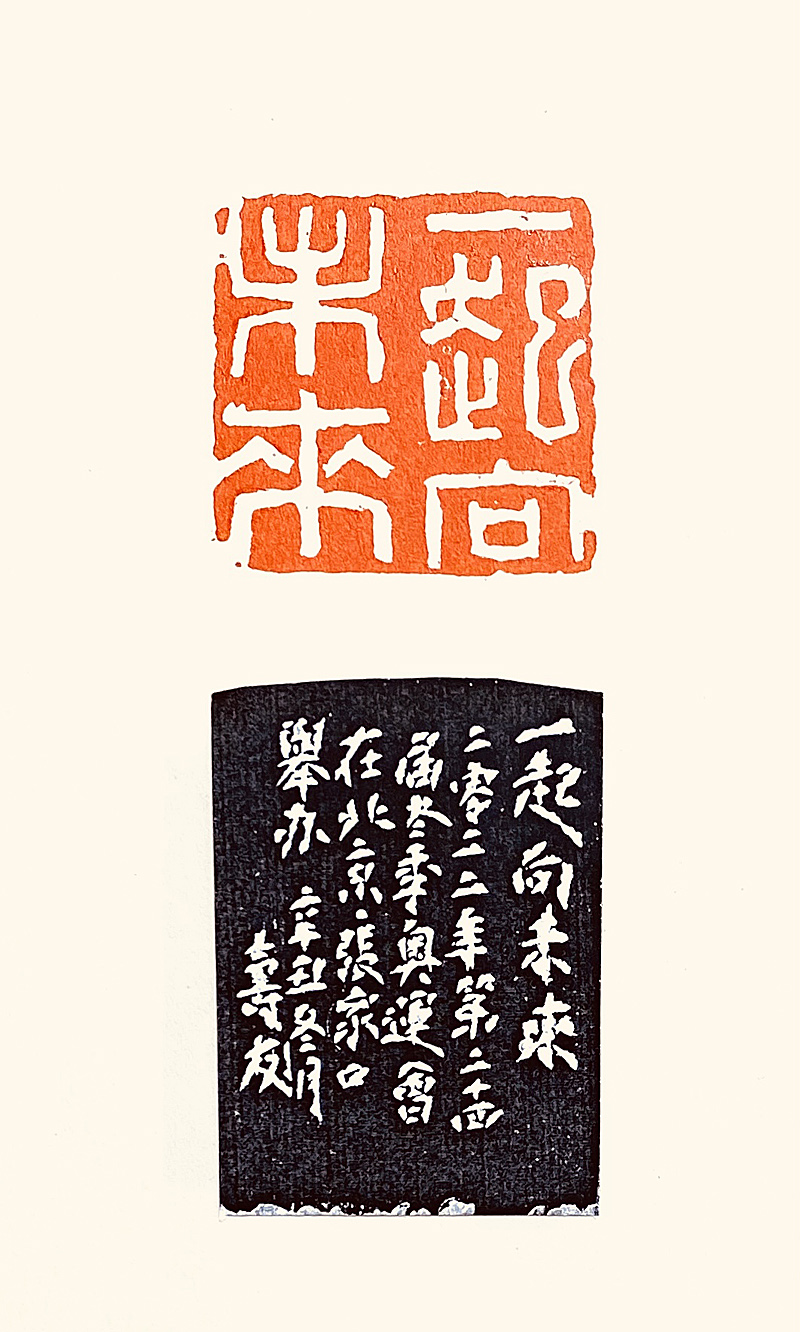 一起向
未来
一起向未來
二零二二年第二十四
届冬季奥運會
在北京·張家口
舉办
辛丑冬月
壽友